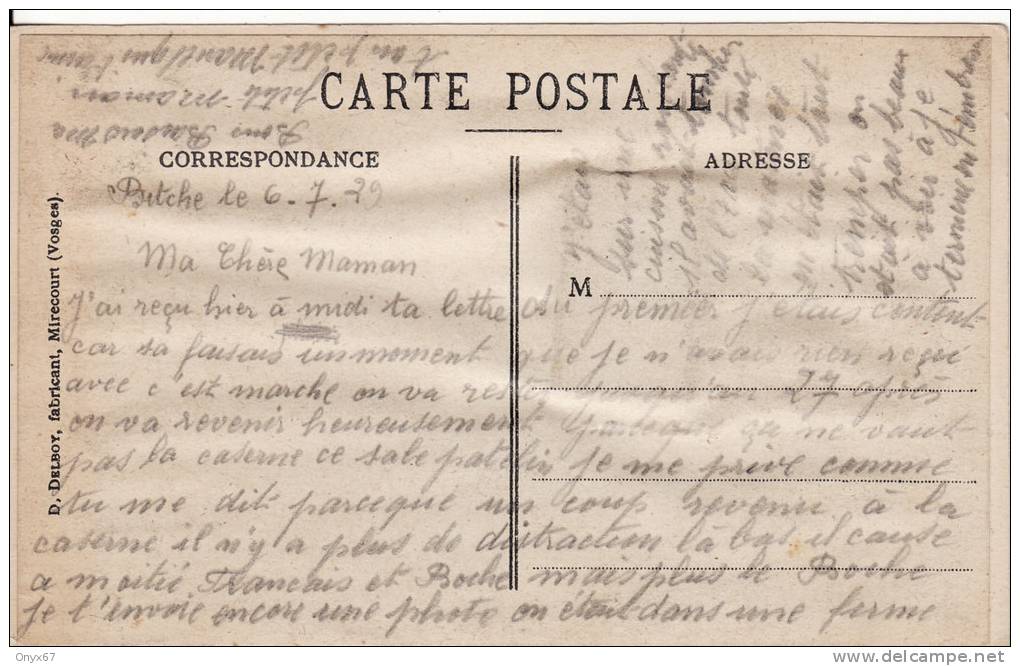 CARTE POSTALE
CORRESPONDANCE
ADRESSE
D. DELBOY, fabricant, Mirecourt (Vosges).
M
Bitche le 6-7-29
Ma Chère Maman
J'ai reçu hier à midi ta lettre du premier j'étais content
car sa faisais un moment que je n'avais rien reçu
avec c'est marche on va rester jusqu'au 27 après
on va revenir heureusement parceque ça ne vaut
pas la caserne ce sale patelin je me prive comme
tu me dit parceque un coup revenu à la
caserne il n'y a plus de distraction là bas il cause
a moitié Francais et Boche mais plus le Boche
je t'envoie encore une photo on était dans une ferme
j'étais
sur une
cuisine
il avait
de
en
en haut tout
tremper on
était pas beau
a voir à
Bons Baisers Ma
petite maman
ton petit qui t'aime
Onyx67
http://www.delcampe.net